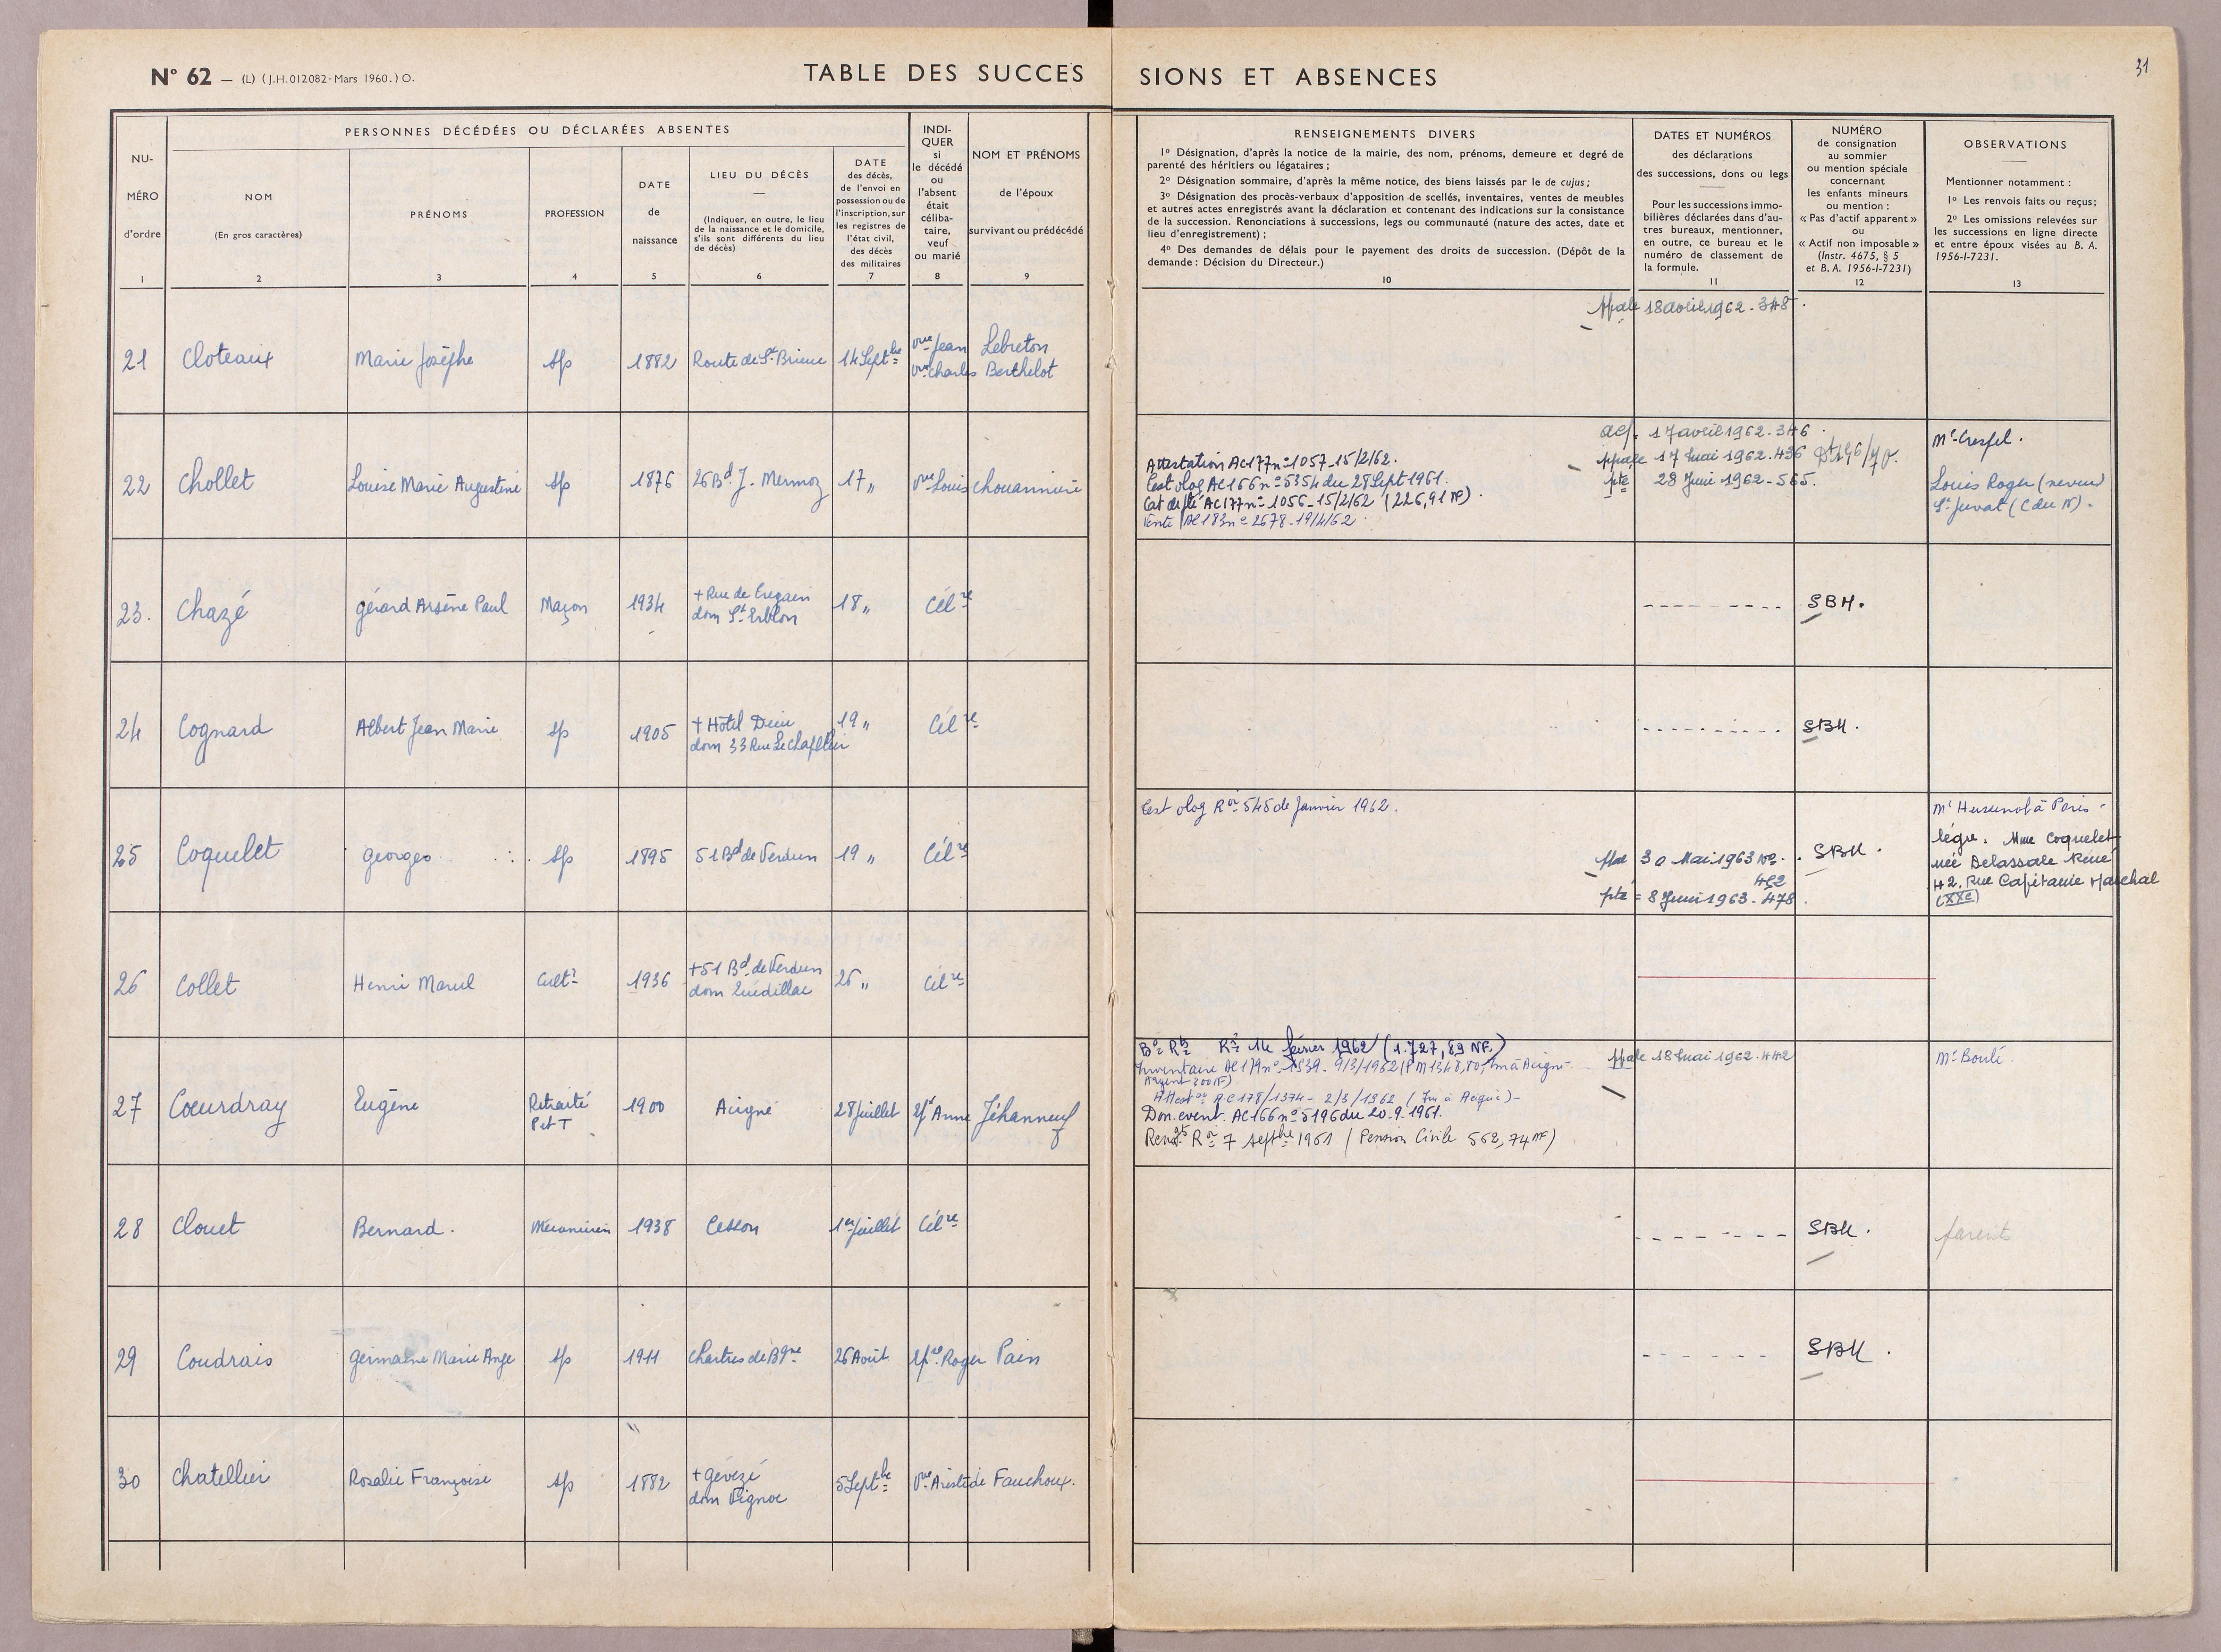 N° 62 — (L) (J.H. 012082 - Mars 1960.) O.
TABLE DES SUCCESSIONS ET ABSENCES
31
NU-
MÉRO
d'ordre
1
PERSONNES DÉCÉDÉES OU DÉCLARÉES ABSENTES
NOM
(En gros caractères)
2
PRÉNOMS
3
PROFESSION
4
DATE
de
naissance
5
LIEU DU DÉCÈS
(Indiquer, en outre, le lieu
de la naissance et le domicile,
s'ils sont différents du lieu
de décès)
6
DATE
des décès,
de l'envoi en
possession ou de
l'inscription, sur
les registres de
l'état civil,
des décès
des militaires
7
INDI-
QUER
si
le décédé
ou
l'absent
était
céliba-
taire,
veuf
ou marié
8
NOM ET PRÉNOMS
de l'époux
survivant ou prédécédé
9
RENSEIGNEMENTS DIVERS
1° Désignation, d'après la notice de la mairie, des nom, prénoms, demeure et degré de
parenté des héritiers ou légataires ;
2° Désignation sommaire, d'après la même notice, des biens laissés par le de cujus ;
3° Désignation des procès-verbaux d'apposition de scellés, inventaires, ventes de meubles
et autres actes enregistrés avant la déclaration et contenant des indications sur la consistance
de la succession. Renonciations à successions, legs ou communauté (nature des actes, date et
lieu d'enregistrement) ;
4° Des demandes de délais pour le payement des droits de succession. (Dépôt de la
demande : Décision du Directeur.)
10
DATES ET NUMÉROS
des déclarations
des successions, dons ou legs
Pour les successions immo-
bilières déclarées dans d'au-
tres bureaux, mentionner,
en outre, ce bureau et le
numéro de classement de
la formule.
11
NUMÉRO
de consignation
au sommier
ou mention spéciale
concernant
les enfants mineurs
ou mention :
« Pas d'actif apparent »
ou
« Actif non imposable »
(Instr. 4675, § 5
et B. A. 1956-I-7231)
12
OBSERVATIONS
Mentionner notamment :
1° Les renvois faits ou reçus ;
2° Les omissions relevées sur
les successions en ligne directe
et entre époux visées au B. A.
1956-I-7231.
13
21 Cloteaux Marie Josèphe sp 1882 Route de St Brieuc 14 Septbre vve Jean Lebreton
vve Charles Berthelot
ppale 18 avril 1962 - 348.
22 Chollet Louise Marie Augustine sp 1876 26 Bd J. Mermoz 17 " vve Louis Chouannière
Attestation AC 177 n° 1057 - 15/2/62.
Test olog AC 166 n° 5354 du 28 Sept 1961.
Cat de pté AC 177 n° 1056 - 15/2/62 (226,91 NF).
Vente AC 183 n° 2678 - 19/4/62.
17 avril 1962 - 346.
ppale 17 mai 1962 - 436
pté 28 Juin 1962 - 565.
Me Crespel.
Louis Roger (neveu)
St Juvat (C du N).
23. Chazé Gérard Arsène Paul Maçon 1934 + Rue de Trégain
dom St Erblon 18 " Célre
SBM.
24 Cognard Albert Jean Marie sp 1905 + Hôtel Dieu
dom 33 Rue Le Chapellier 19 " Célre
SBM.
25 Coquelet Georges sp 1895 51 Bd de Verdun 19 " Célre
Test olog Ror 545 de Janvier 1962.
ppal 30 Mai 1963 No.
402
pté = 8 Juin 1963 - 478.
SBM.
à Paris
légre. Mme Coquelet
née Delassale René
42. Rue Capitaine Marchal
(XXe)
26 Collet Henri Marcel Cultr 1936 + 51 Bd de Verdun
dom Quédillac 26 " Célre
27 Coeurdray Eugène Retraité
P et T 1900 Acigné 28 Juillet Ep Anne Jéhanneuf
février 1962 (1.727,89 NF.)
Inventaire AC 179 n° 1539 - 9/3/1962 (PM 1348,80, Im à Acigné -
Argent 300 NF)
Attestion AC 178/1374 - 2/3/1962 (Im à Acigné) -
Don. évent. AC 166 n° 5196 du 20.9.1961.
Rensgts Ror 7 septbre 1961 (Pension Civile 562,74 NF)
ppale 18 mai 1962 - 442
Me Boulé
28 Clouet Bernard. Mécanicien 1938 Cesson 1er Juillet Célre
SBM.
parents
29 Coudrais Germaine Marie Ange sp 1911 Chartres de Bgne 26 Août Epse Roger Pain
SBM.
30 Chatellier Rosalie Françoise sp 1882 + Gévezé
dom Vignoc 5 Septbre Vve Aristide Fauchoux.